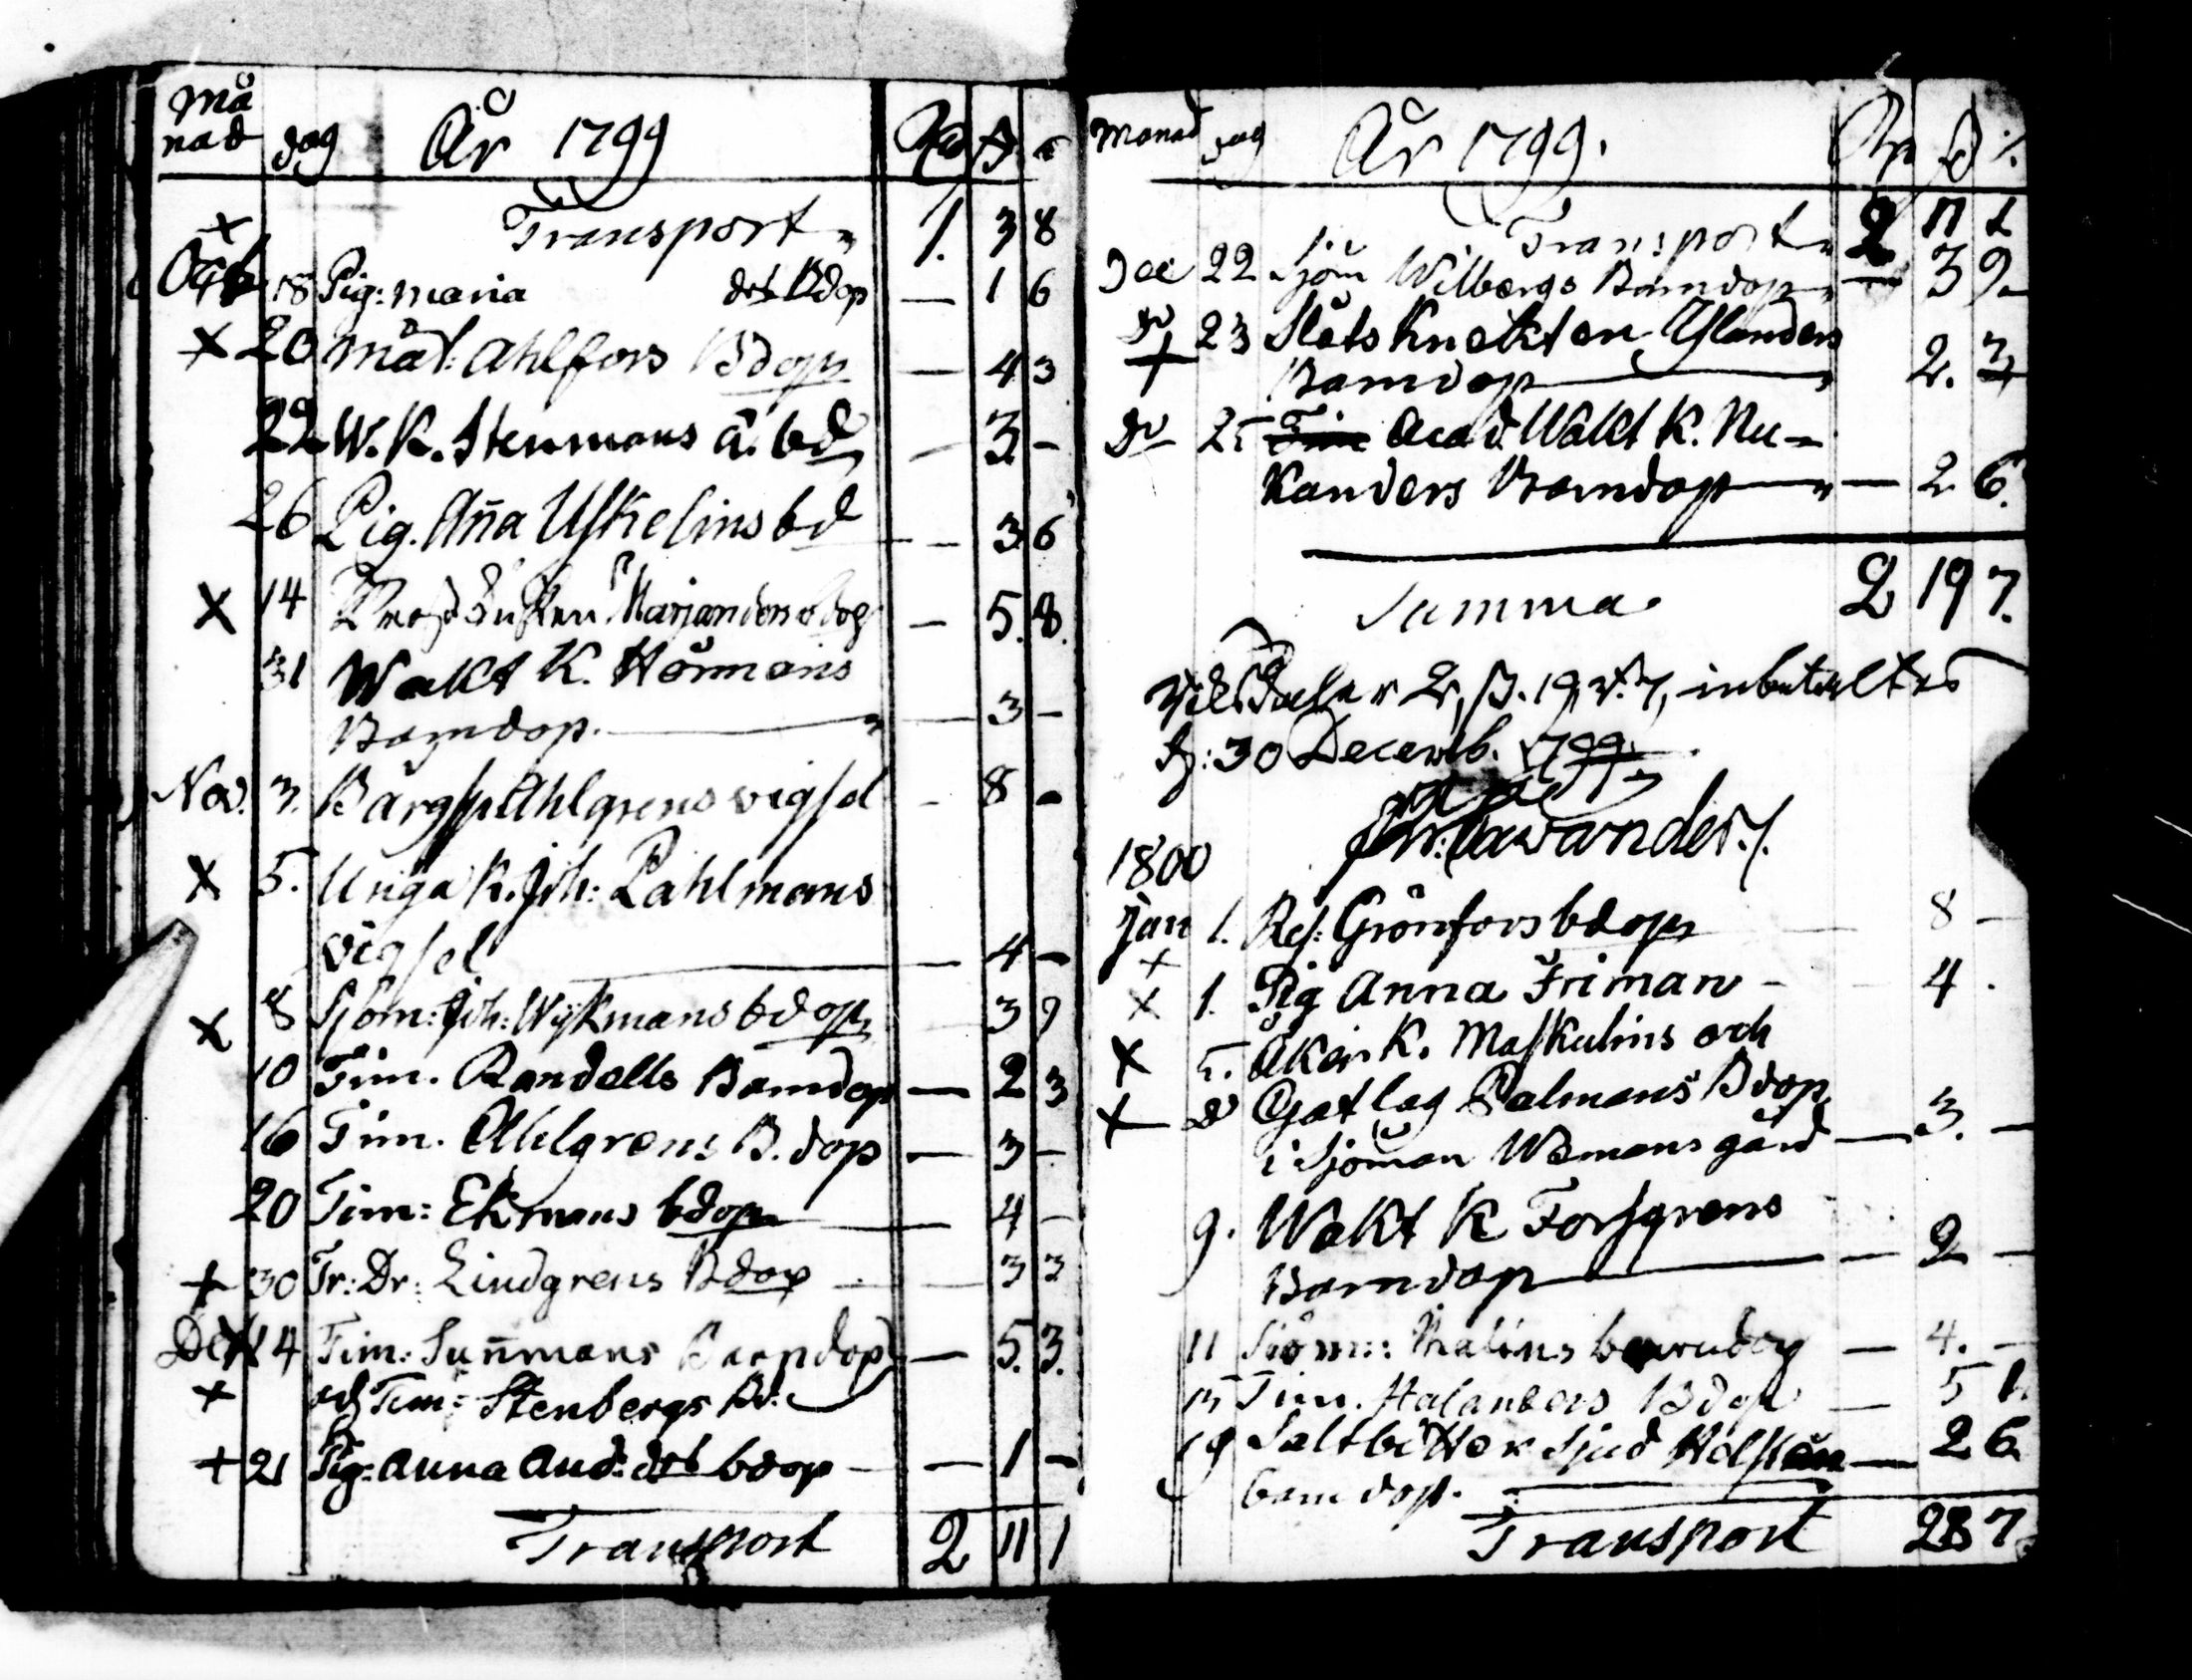 Månad dag År 1799 Rd ß
Transport 1. 3 8
Octb 18 Pig: maria dot. Bdop — 1 6
20 Mål: Ahlfors Bdop — 4 3
22 W. K. Stenmans ä. bd — 3 –
26 Pig. Aña Uskelins bd — 3 6
14 Marjanders bdop — 5. 8.
31 Wakt K. Hörmans
Barndop. — 3 –
Nov. 3. Ahlgrens vigsel - 8 -
5. Unga K. Joh: Pahlmans
vigsel — 4 –
8 Sjöm: Joh: Wijkmans bdop 3 9
10 Tim. Randells Barndop — 2 3
16 Tim. Ahlgrens B. dop — 3 –
20 Tim: Ekmans bdop — 4 –
30 Tr: Dr: Lindgrens Bdop — 3 3
Dec 14 Tim: Suñmans Barndop — 5. 3.
och Tim: Stenbergs Bd.
21 Pig: Anna And: dot bdop — 1 –
Transport 2 11 1
Månad dag År 1799.
Transport 2 11 1
Dec 22 Sjöm Wilbergs Barndop — 3 9
do 23 Slåts Knekten Ylanders
Barndop 2. 3
do 25 Acad. Wakt K. Nu-
kanders Barndop — 2 6.
Summa 2 19 7.
Riksdaler 2, ß. 19, r. 7, inbetaltes
d: 30 Decemb. 1799.
Lavander.
1800
Jan 1. Ref: Grönfors bdop 8 –
1. Pig Anna Friman – 4 .
5. Åker K. Maskulins och
do Gatlag Palmans Bdop
i Sjöman Wemans gård — 3. –
9. Wakt K Forsgrens
Barndop — 2 –
11 Sjöm: Malins barndop — 4. –
15 Tim. Halanders Bdop — 5 1.
19 Saltbittar Sjud Holsten — 2 6
barndop.
Transport 28 7